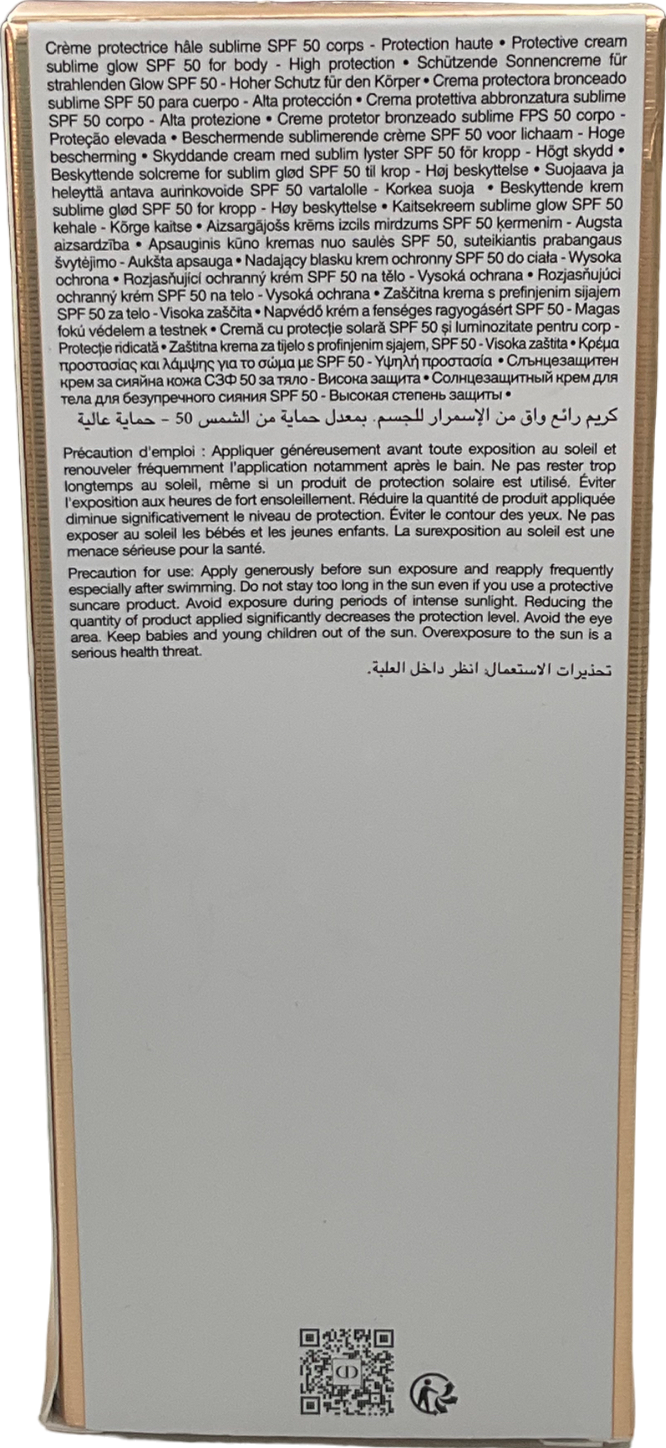 Crème protectrice hâle sublime SPF 50 corps - Protection haute • Protective cream
sublime glow SPF 50 for body - High protection • Schützende Sonnencreme für
strahlenden Glow SPF 50 - Hoher Schutz für den Körper • Crema protectora bronceado
sublime SPF 50 para cuerpo - Alta protección • Crema protettiva abbronzatura sublime
SPF 50 corpo - Alta protezione • Creme protetor bronzeado sublime FPS 50 corpo -
Proteção elevada • Beschermende sublimerende crème SPF 50 voor lichaam - Hoge
bescherming • Skyddande cream med sublim lyster SPF 50 för kropp - Högt skydd •
Beskyttende solcreme for sublim glød SPF 50 til krop - Høj beskyttelse • Suojaava ja
heleyttä antava aurinkovoide SPF 50 vartalolle - Korkea suoja • Beskyttende krem
sublime glød SPF 50 for kropp - Høy beskyttelse • Kaitsekreem sublime glow SPF 50
kehale - Kõrge kaitse • Aizsargājošs krēms izcils mirdzums SPF 50 ķermenim - Augsta
aizsardzība • Apsauginis kūno kremas nuo saulės SPF 50, suteikiantis prabangaus
švytėjimo - Aukšta apsauga • Nadający blasku krem ochronny SPF 50 do ciała - Wysoka
ochrona • Rozjasňující ochranný krém SPF 50 na tělo - Vysoká ochrana • Rozjasňujúci
ochranný krém SPF 50 na telo - Vysoká ochrana • Zaščitna krema s prefinjenim sijajem
SPF 50 za telo - Visoka zaščita • Napvédő krém a fenséges ragyogásért SPF 50 - Magas
fokú védelem a testnek • Cremă cu protecție solară SPF 50 și luminozitate pentru corp -
Protecție ridicată • Zaštitna krema za tijelo s profinjenim sjajem, SPF 50 - Visoka zaštita • Κρέμα
προστασίας και λάμψης για το σώμα με SPF 50 - Υψηλή προστασία • Слънцезащитен
крем за сияйна кожа СЗФ 50 за тяло - Висока защита • Солнцезащитный крем для
тела для безупречного сияния SPF 50 - Высокая степень защиты •
كريم رائع واق من الإسمرار للجسم. بمعدل حماية من الشمس 50 - حماية عالية
Précaution d'emploi : Appliquer généreusement avant toute exposition au soleil et
renouveler fréquemment l'application notamment après le bain. Ne pas rester trop
longtemps au soleil, même si un produit de protection solaire est utilisé. Éviter
l'exposition aux heures de fort ensoleillement. Réduire la quantité de produit appliquée
diminue significativement le niveau de protection. Éviter le contour des yeux. Ne pas
exposer au soleil les bébés et les jeunes enfants. La surexposition au soleil est une
menace sérieuse pour la santé.
Precaution for use: Apply generously before sun exposure and reapply frequently
especially after swimming. Do not stay too long in the sun even if you use a protective
suncare product. Avoid exposure during periods of intense sunlight. Reducing the
quantity of product applied significantly decreases the protection level. Avoid the eye
area. Keep babies and young children out of the sun. Overexposure to the sun is a
serious health threat.
تحذيرات الاستعمال: انظر داخل العلبة.
CD